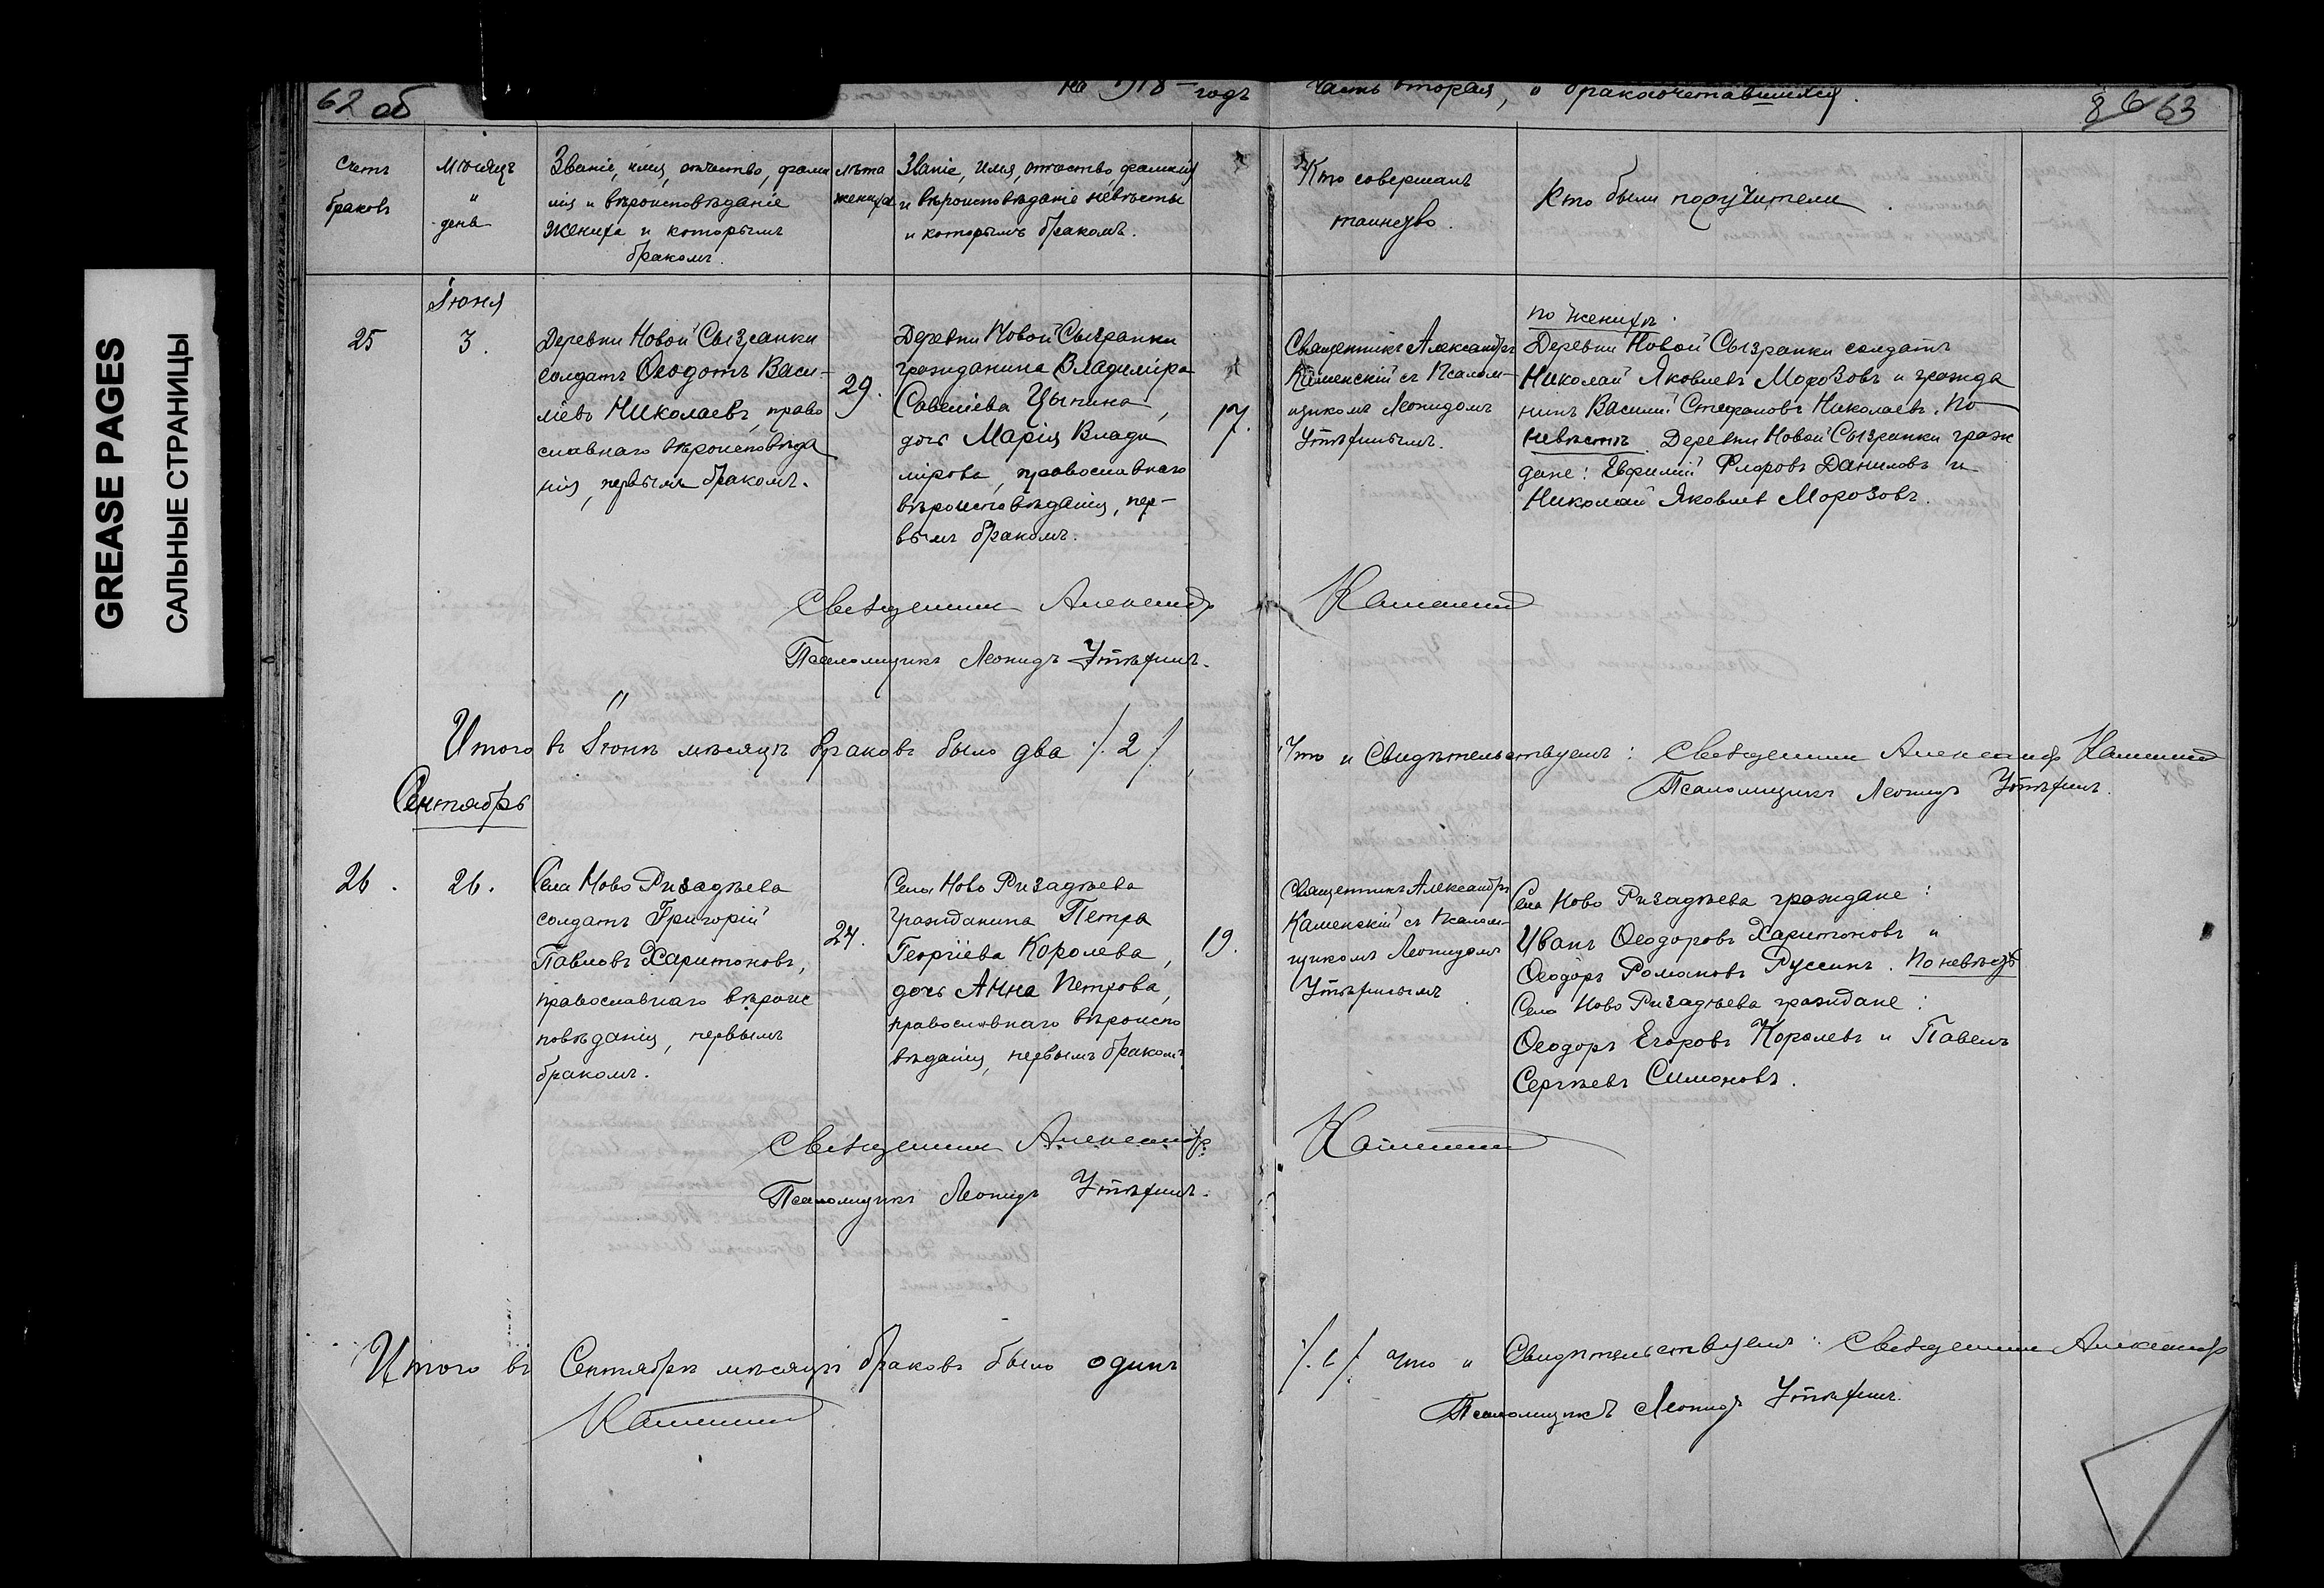 GREASE PAGES
САЛЬНЫЕ СТРАНИЦЫ
62 об
на 1918 - годъ
Часть вторая, о бракосочетавшихся.
86 63
Счетъ
браковъ
Мѣсяцъ
и
день
Званіе, имя, отчество, фами
лія и вѣроисповѣданіе
жениха и которымъ
бракомъ.
лѣта
жениха
Званіе, имя, отчество, фамилія
и вѣроисповѣданіе невѣсты
и которымъ бракомъ.
Кто совершалъ
таинство.
Кто были поручители.
Іюня
25
3.
Деревни Новой Сызранки
солдатъ Ѳеодотъ Васи-
ліевъ Николаевъ, право
славнаго вѣроисповѣда
нія, первымъ бракомъ.
29.
Деревни Новой Сызранки
гражданина Владиміра
Савеліева Цыпина,
дочь Марія Влади
мірова, православнаго
вѣроисповѣданія, пер-
вымъ бракомъ.
17.
Священникъ Александръ
Каменскій съ Псалом-
щикомъ Леонидомъ
Утѣхинымъ.
по женихѣ:
Деревни Новой Сызранки солдатъ
Николай Яковлевъ Морозовъ и гражда
нинъ Василій Стефановъ Николаевъ. По
невѣстѣ Деревни Новой Сызранки граж
дане: Евфимій Флоровъ Даниловъ и
Николай Яковлевъ Морозовъ.
Священникъ Александръ Каменскій
Псаломщикъ Леонидъ Утѣхинъ.
Итого въ Іюнѣ мѣсяцѣ браковъ было два /. 2 /.
Что и свидѣтельствуемъ: Священникъ Александръ Каменскій
Псаломщикъ Леонидъ Утѣхинъ.
Сентябрь
26.
26.
Села Ново Ризадѣева
солдатъ Григорій
Павловъ Харитоновъ,
православнаго вѣроис
повѣданія, первымъ
бракомъ.
24.
Села Ново Ризадѣева
гражданина Петра
Георгіева Королева,
дочь Анна Петрова,
православнаго вѣроиспо
вѣданія, первымъ бракомъ
19.
Священникъ Александръ
Каменскій съ Псалом-
щикомъ Леонидомъ
Утѣхинымъ.
Села Ново Ризадѣева граждане:
Иванъ Ѳеодоровъ Харитоновъ и
Ѳеодоръ Романовъ Руссинъ. По невѣстѣ
Села Ново Ризадѣева граждане:
Ѳеодоръ Егоровъ Королевъ и Павелъ
Сергѣевъ Симоновъ.
Священникъ Александръ Каменскій
Псаломщикъ Леонидъ Утѣхинъ.
Итого въ Сентябрѣ мѣсяцѣ браковъ было одинъ
/. 1 /. Что и свидѣтельствуемъ: Священникъ Александръ
Каменскій
Псаломщикъ Леонидъ Утѣхинъ.